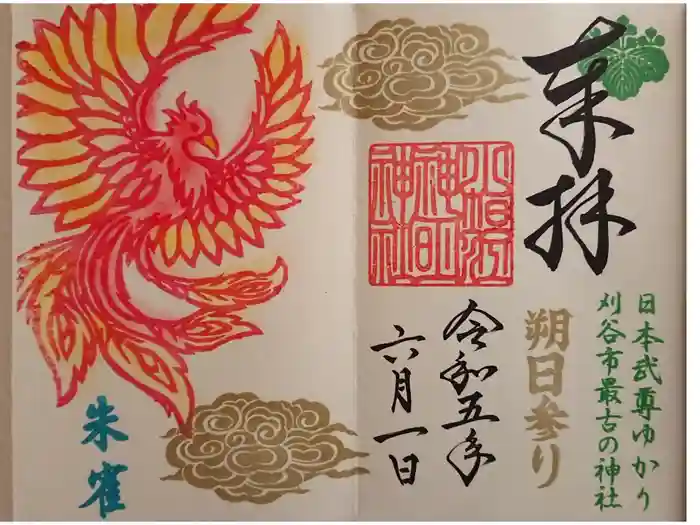 奉拝
日本武尊ゆかり
刈谷市最古の神社
朔日参り
令和五年
六月一日
朱雀